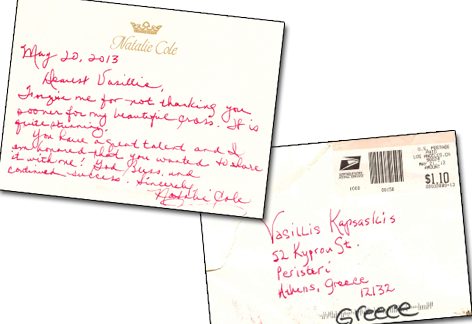 Natalie Cole
May 20, 2013
Dearest Vasillis,
Forgive me for not thanking you
sooner for my beautiful cross. It is
quite stunning.
You have a great talent and I
am honored that you wanted to share
it with me! God bless, and
continued success. Sincerely
Natalie Cole
U.S. POSTAGE
PAID
$1.10
1000
Vasillis Kapsaskis
52 Kyprou St.
Peristeri
Athens, Greece
12132
Greece